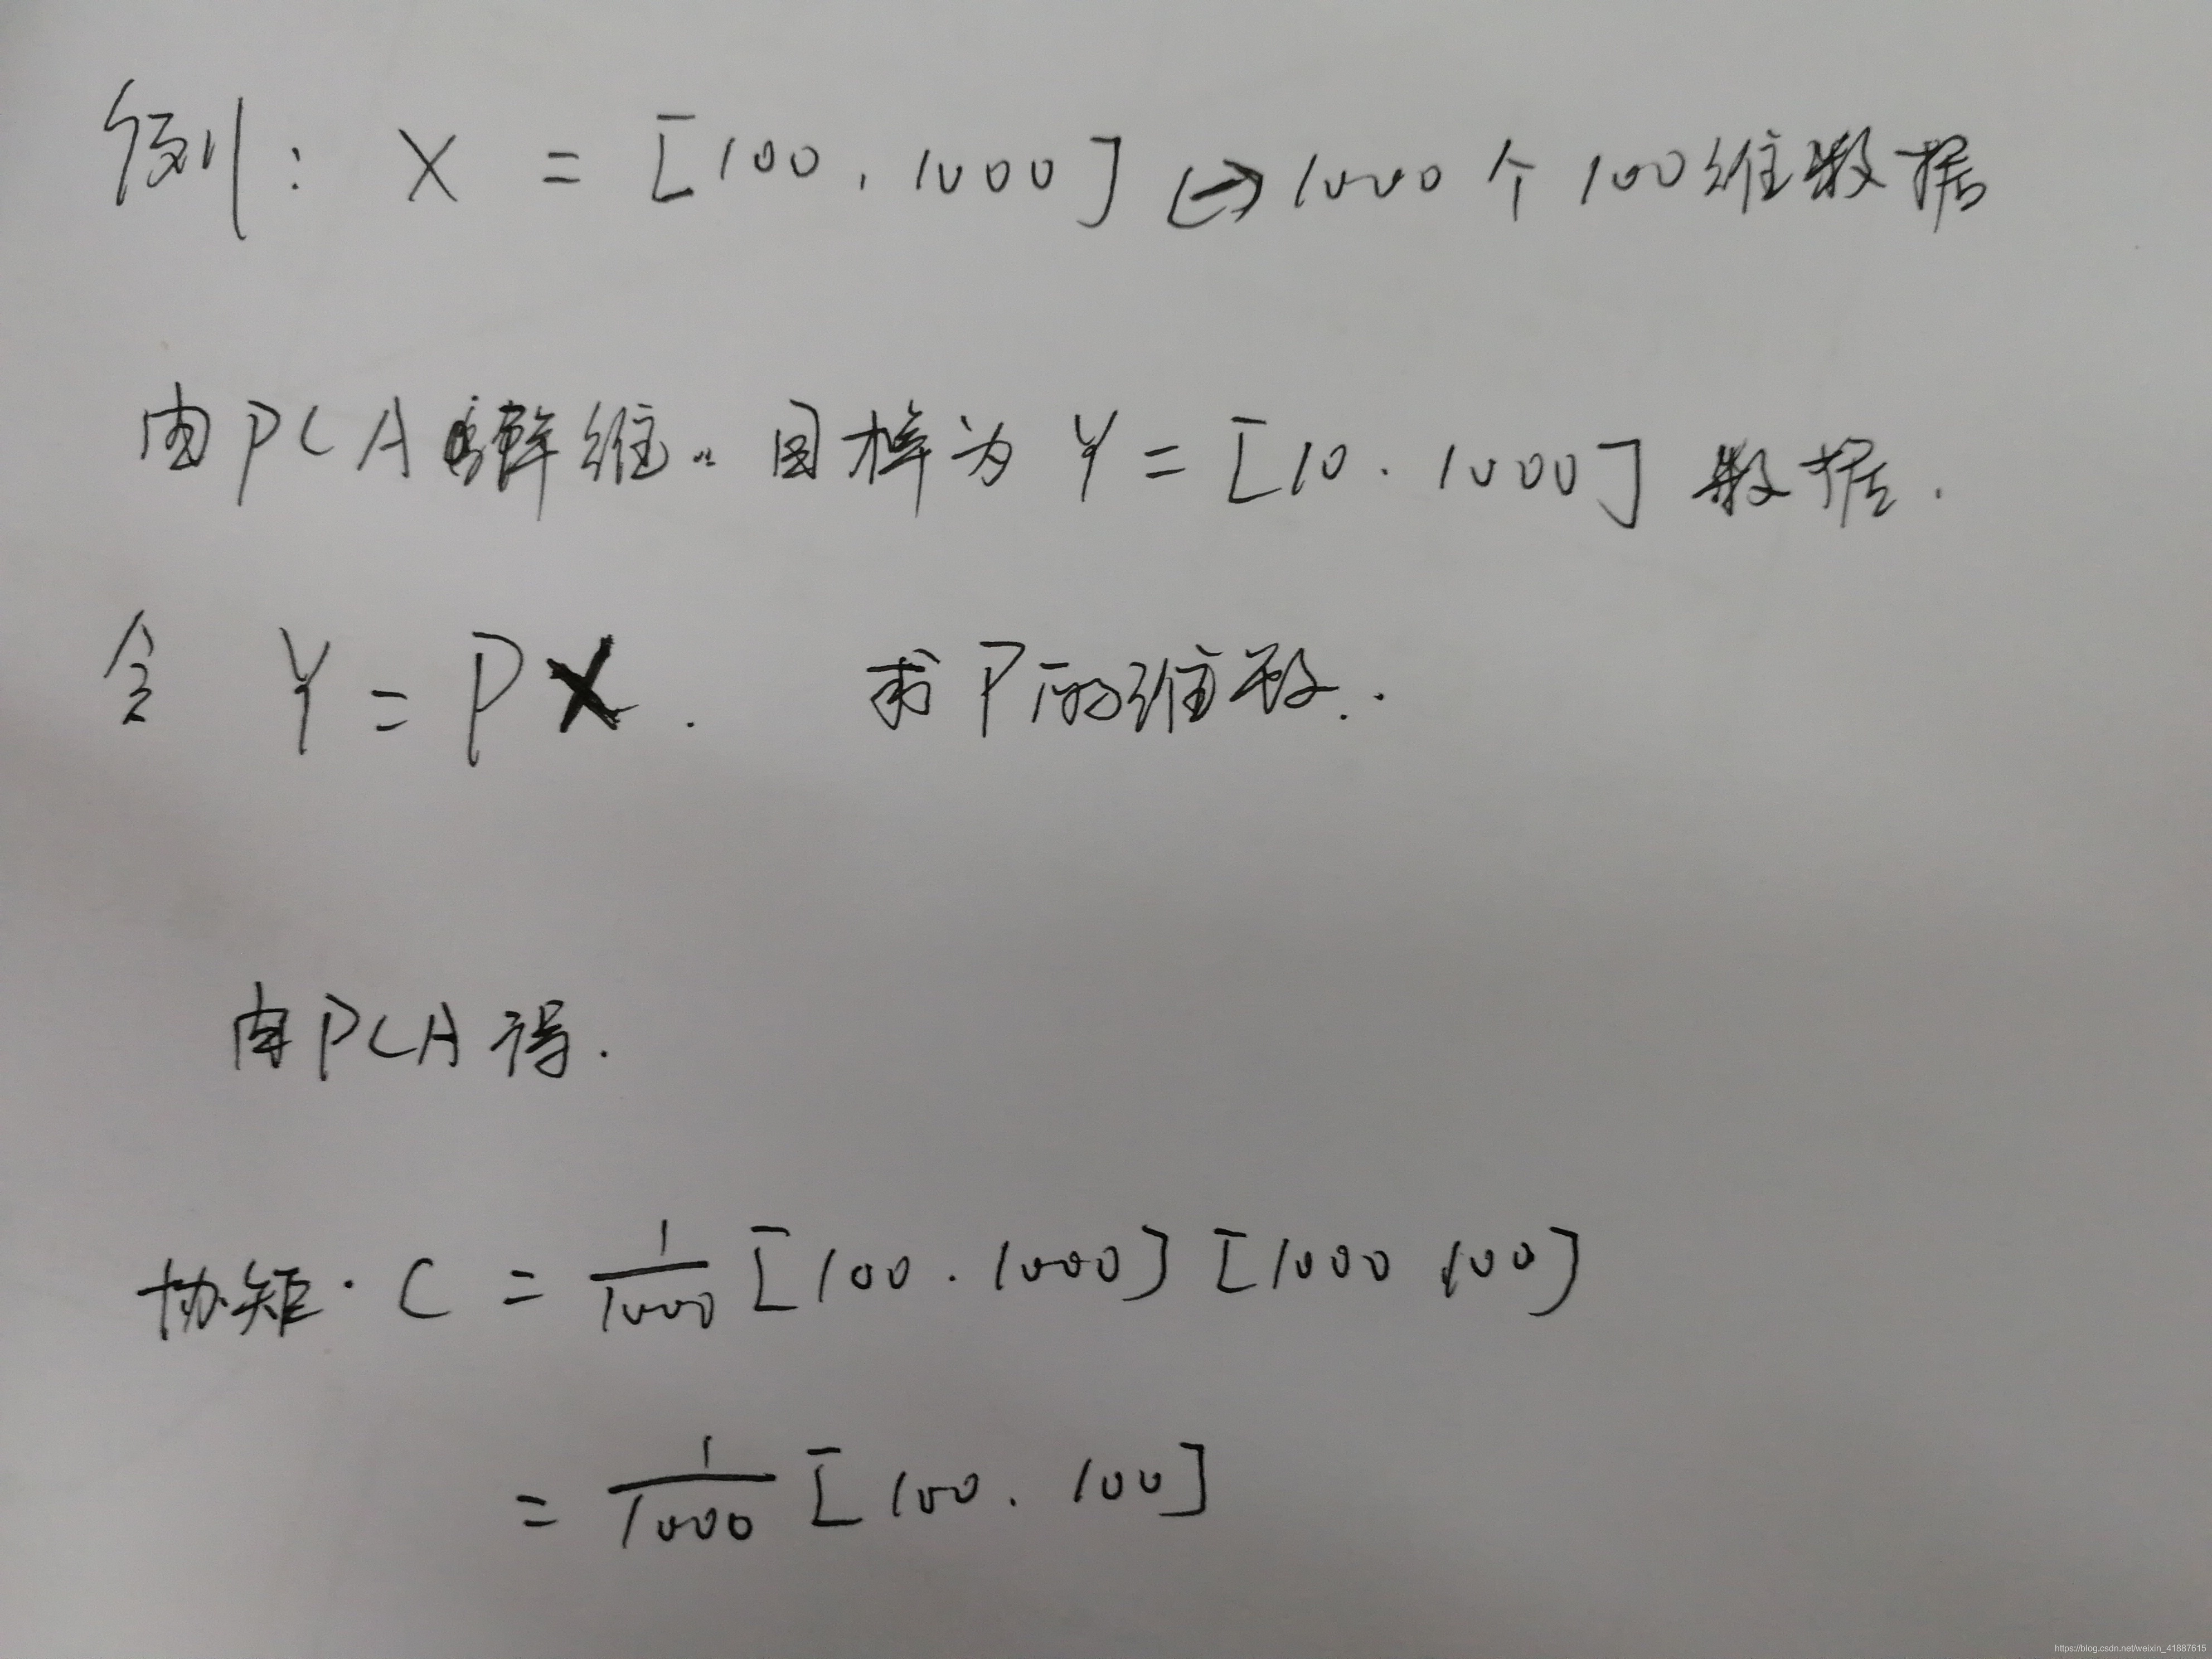 例: X = [100, 1000] ↔ 1000个100维数据
由PCA降维.. 目标为 Y = [10. 1000] 数据.
令 Y = PX. 求P的维数..
由PCA得.
协矩. C = 1/1000 [100. 1000] [1000 100]
= 1/1000 [100. 100]
https://blog.csdn.net/weixin_41887615